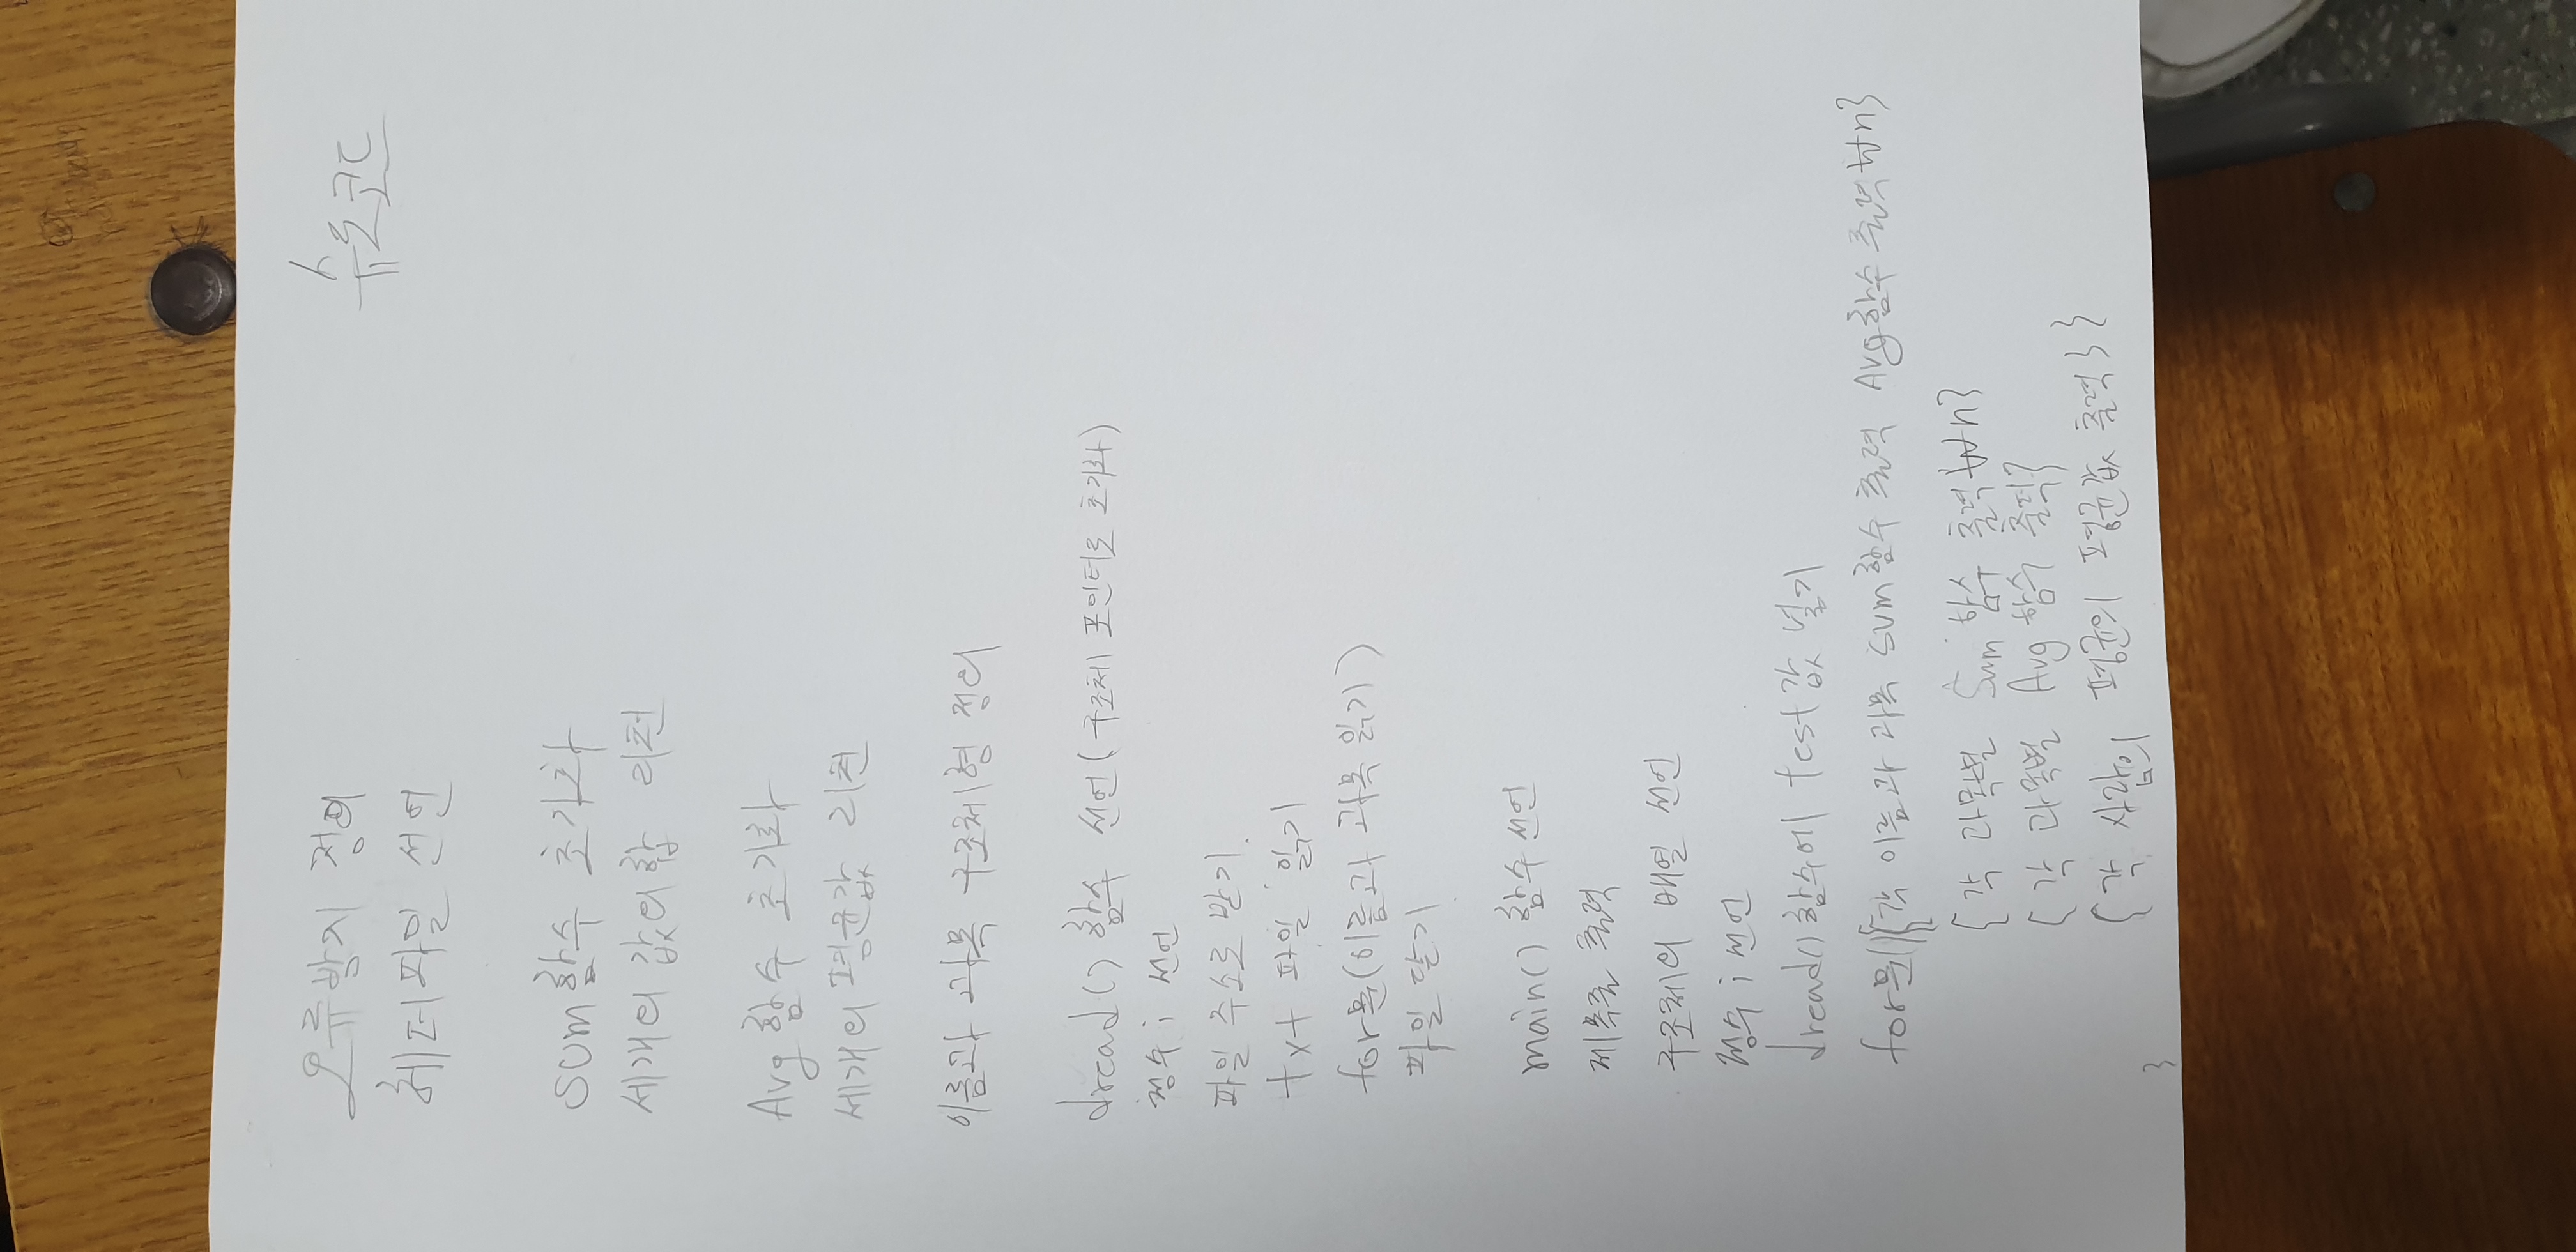 오류방지 정의
슈도코드
헤더파일 선언
sum함수 초기화
세개의 값의 합 리턴
Avg함수 초기화
세개의 평균값 리턴
이름과 과목 구조체형 정의
dread() 함수 선언(구조체 포인터로 초기화)
정수 i 선언
파일 주소로 받기.
txt 파일 읽기
for문(이름과 과목 읽기)
파일 닫기
main() 함수 선언
제목줄 출력
구조체의 배열 선언
정수 i 선언
dread()함수에 test값 넣기
for문(){각 이름과 과목 sum함수 출력 Avg함수 출력₩n}
{각 과목별 Sum 함수 출력₩n}
{각 과목별 Avg 함수 출력}
{각 사람의 평균의 평균값 출력}}
}